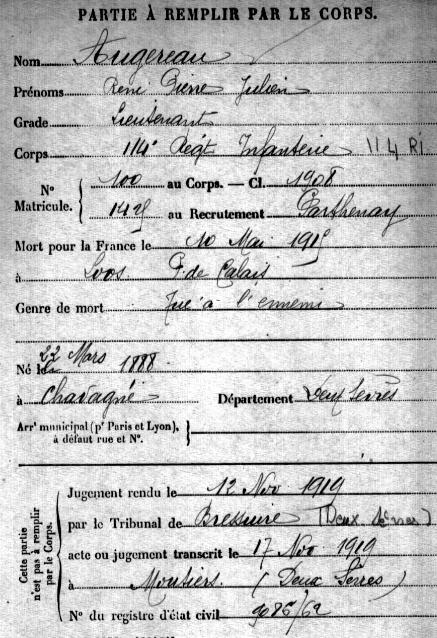 PARTIE À REMPLIR PAR LE CORPS.
Nom Augereau
Prénoms René Pierre Julien
Grade Lieutenant
Corps 114e Regt Infanterie 114 RI
N° Matricule. 100 au Corps. — Cl. 1908
au Recrutement Parthenay
Mort pour la France le 10 Mai 1915
à Loos P. de Calais
Genre de mort Tué à l'ennemi
Né le 22 Mars 1888
à Chavagné Département Deux Sèvres
Arrt municipal (pr Paris et Lyon),
à défaut rue et N°.
Cette partie n'est pas à remplir par le Corps.
Jugement rendu le 12 Nov 1919
par le Tribunal de Bressuire (Deux Sèvres)
acte ou jugement transcrit le 17 Nov 1919
à Moutiers (Deux Sèvres)
N° du registre d'état civil